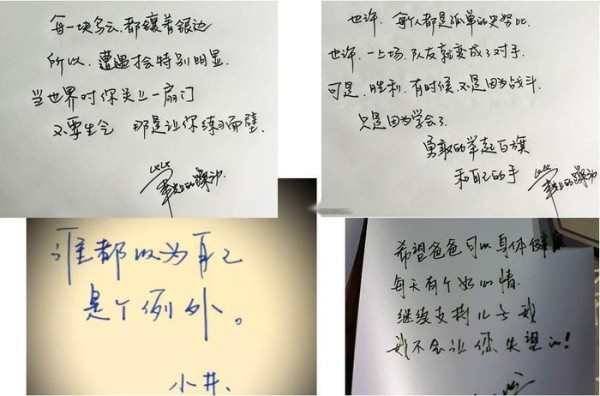 每一块乌云,都镶着银边
所以,遭遇才会特别明显.
当世界对你关上一扇门
不要生气 那是让你练习面壁.
也许,每个人都是孤单的史努比.
也许,一上场,队友就变成了对手.
可是,胜利,有时候不是因为战斗.
只是因为学会了
勇敢的举起白旗
和自己的手
谁都以为自己
是个例外。
小井.
希望爸爸可以身体健康
每天有个好心情.
继续支持儿子我
我不会让您失望的!